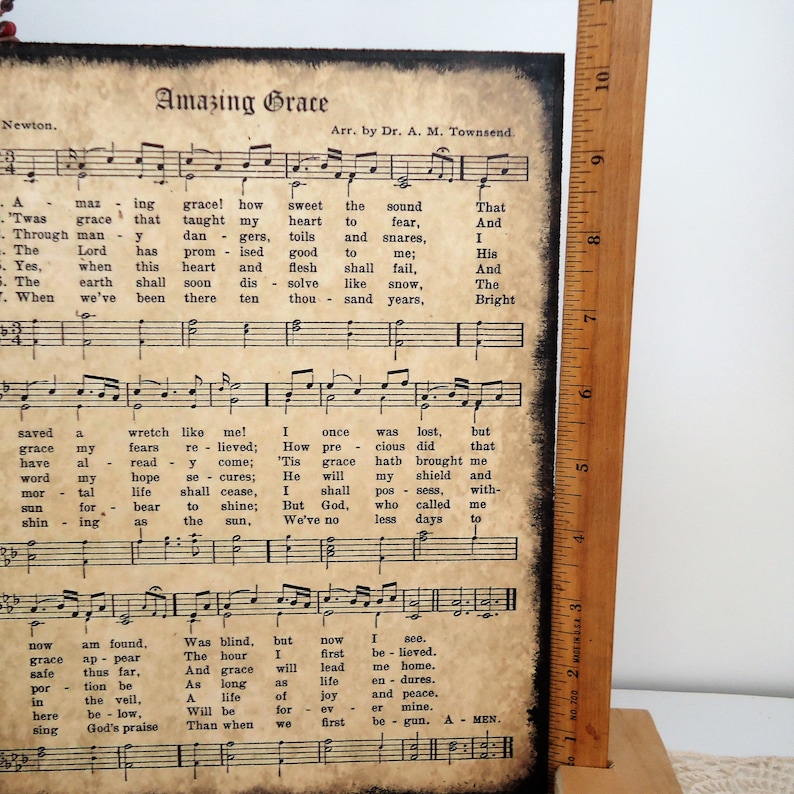 Amazing Grace
Newton. Arr. by Dr. A. M. Townsend.
3 4
A - maz - ing grace! how sweet the sound That
'Twas grace that taught my heart to fear, And
Through man - y dan - gers, toils and snares, I
The Lord has prom - ised good to me; His
Yes, when this heart and flesh shall fail, And
The earth shall soon dis - solve like snow, The
7. When we've been there ten thou - sand years, Bright
3 4
saved a wretch like me! I once was lost, but
grace my fears re - lieved; How pre - cious did that
have al - read - y come; 'Tis grace hath brought me
word my hope se - cures; He will my shield and
mor - tal life shall cease, I shall pos - sess, with-
sun for - bear to shine; But God, who called me
shin - ing as the sun, We've no less days to
now am found, Was blind, but now I see.
grace ap - pear The hour I first be - lieved.
safe thus far, And grace will lead me home.
por - tion be As long as life en - dures.
in the veil, A life of joy and peace.
here be - low, Will be for - ev - er mine.
sing God's praise Than when we first be - gun. A - MEN.
10
9
8
7
6
5
4
3
2
1
NO. 700 MADE IN U.S.A.